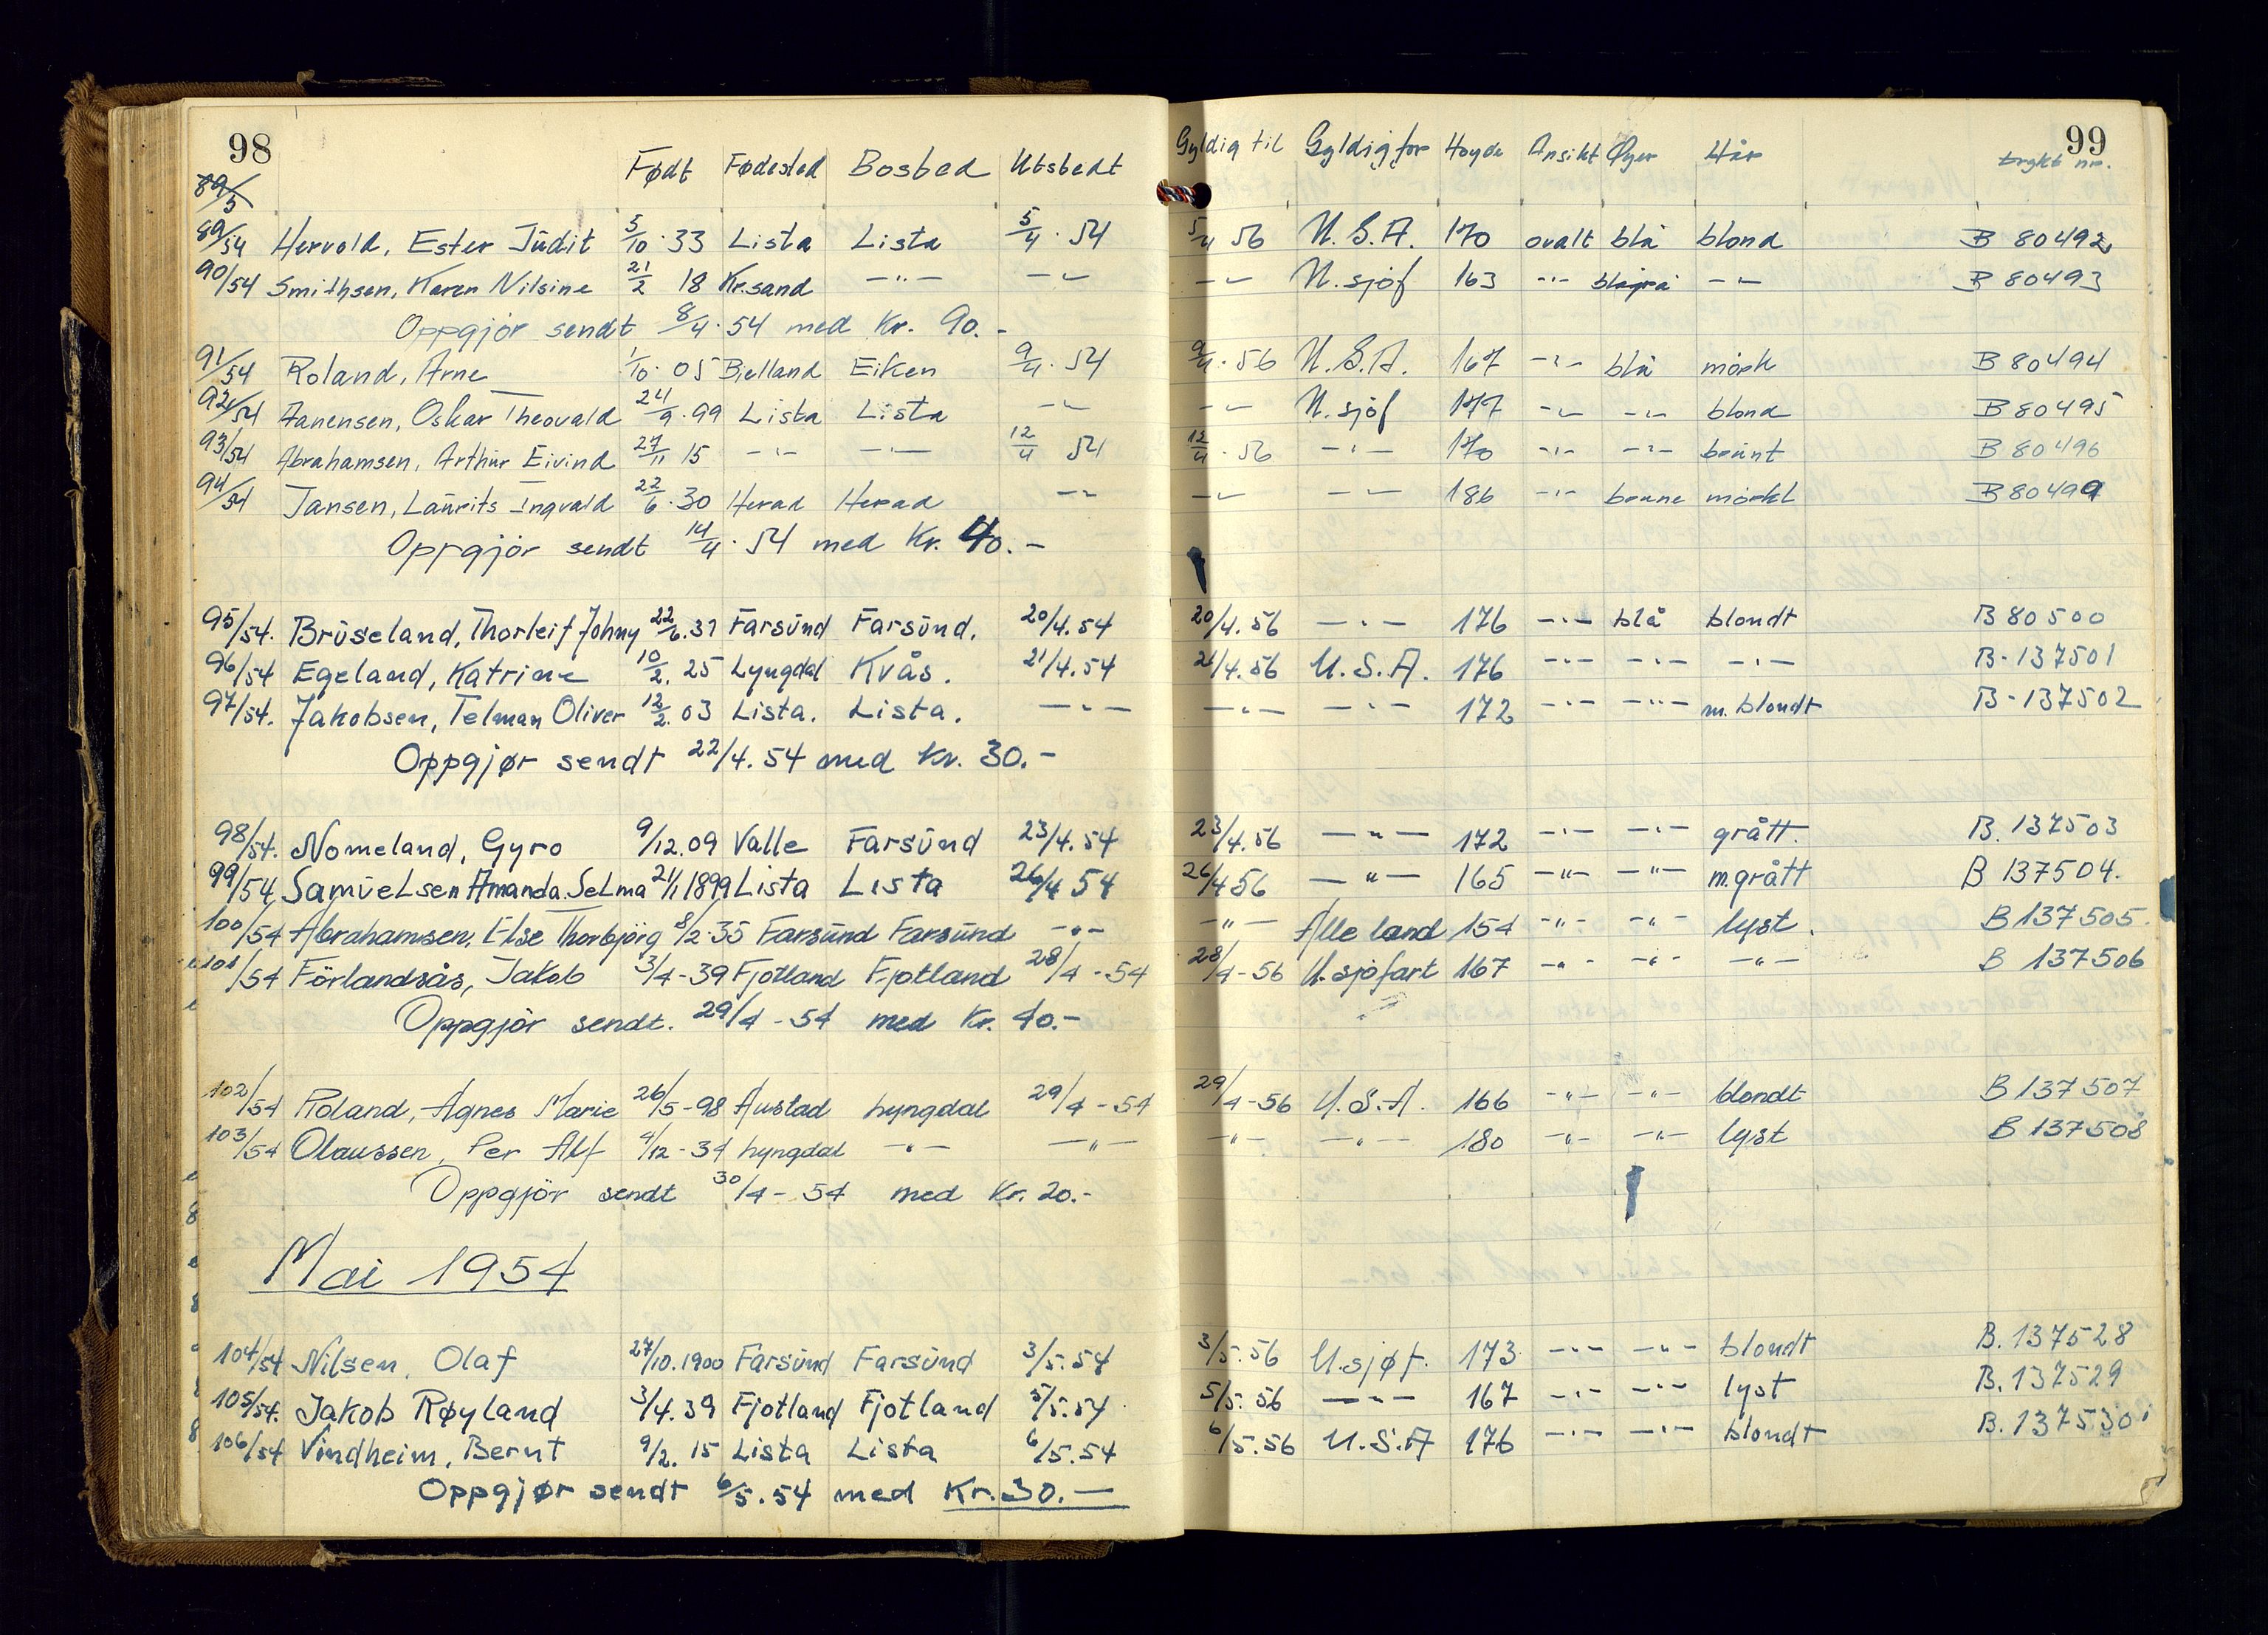 98 99
Født Fødested Bosted Utstedt Gyldig til Gyldig for Høyde Ansikt Øyer Hår trykt nr.
89/5
89/54 Hervold, Ester Judit 5/10.33 Lista Lista 5/4.54 5/4 56 U.S.A. 170 ovalt blå blond B 80492
90/54 Smithsen, Karen Nilsine 21/2 18 Kr.sand -"- -"- -"- U.sjøf 163 -"- blågrå -"- B 80493
Oppgjør sendt 8/4.54 med Kr. 90.-
91/54 Roland, Arne 1/10.05 Bjelland Eiken 9/4.54 9/4.56 U.S.A. 167 -"- blå mørk B 80494
92/54 Aanensen, Oskar Theovald 24/9.99 Lista Lista -"- -"- U.sjøf 177 -"- -"- blond B 80495
93/54 Abrahamsen, Arthur Eivind 27/11 15 -"- -"- 12/4 54 12/4.56 -"- 170 -"- -"- brunt B 80496
94/54 Jansen, Laurits Ingvald 22/6.30 Herad Herad -"- -"- -"- 186 -"- brune mørkt B 80499
Oppgjør sendt 14/4.54 med Kr. 40.-
95/54. Bruseland, Thorleif Johny 22/6.37 Farsund Farsund. 20/4.54 20/4.56 -"- 176 -"- blå blondt B 80500
96/54 Egeland, Katrine 10/2.25 Lyngdal Kvås. 21/4.54 21/4.56 U.S.A. 176 -"- -"- -"- B-137501
97/54. Jakobsen, Telman Oliver 12/2.03 Lista. Lista. -"- -"- -"- 172 -"- -"- m.blondt B-137502
Oppgjør sendt 22/4.54 med Kr. 30.-
98/54. Nomeland, Gyro 9/12.09 Valle Farsund 23/4.54 23/4.56 -"- 172 -"- -"- grått. B. 137503
99/54 Samuelsen Amanda Selma 21/1 1899 Lista Lista 26/4 54 26/4 56 -"- 165 -"- -"- m.grått B 137504.
100/54 Abrahamsen, Else Thorbjörg 8/2.35 Farsund Farsund -"- -"- Alle land 154 -"- -"- lyst. B 137505.
101/54 Förlandsås, Jakob 3/4-39 Fjotland Fjotland 28/4-54 28/4-56 U.sjøfart 167 -"- -"- -"- B 137506
Oppgjör sendt. 29/4-54 med Kr. 40.-
102/54 Roland, Agnes Marie 26/5-98 Austad Lyngdal 29/4-54 29/4-56 U.S.A. 166 -"- -"- blondt B 137507
103/54 Olaussen, Per Alf 4/12-34 Lyngdal -"- -"- -"- -"- 180 -"- -"- lyst B 137508
Oppgjör sendt 30/4-54 med Kr. 20.-
Mai 1954
104/54 Nilsen, Olaf 27/10.1900 Farsund Farsund 3/5.54 3/5.56 U.sjøf. 173 -"- -"- blondt B. 137528
105/54. Jakob Røyland 3/4.39 Fjotland Fjotland 5/5.54 5/5.56 -"- 167 -"- -"- lyst B. 137529
106/54 Vindheim, Bernt 9/2.15 Lista Lista 6/5.54 6/5.56 U.S.A 176 -"- -"- blondt B. 137530
Oppgjør sendt 6/5.54 med Kr. 30.-